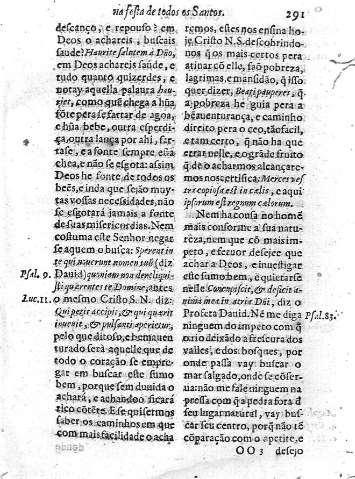 na festa de todos os Santos. 291
descanço, e repouso? em
Deos o achareis, buscais
saude? Haurite salutem à Dño,
em Deos achareis saúde, e
tudo quanto quizerdes, e
notay aquella palaura hau-
riet, como quẽ chega a hũa
fõte pera se fartar de agoa,
e hũa bebe, outra esperdi-
ça, outra lança por ahi, far-
tase, e a fonte sempre está
chea, e não se esgota: assim
Deos he fonte de todos os
bẽes, e inda que sejão muy-
tas vossas necessidades, não
se esgotará jamais a fonte
de suas misericordias. Nem
costuma este Senhor negar
se a quem o busca: Sperent in
te qui nouerunt nomen tuũ (diz
Psal. 9. Dauid) quoniam non dereliqui-
sti quærentes te Domine, antes
Luc. 11. o mesmo Cristo S. N. diz:
Qui petit accipit, & qui quærit
inuenit, & pulsanti aperietur,
pelo que ditoso, e bemauen
turado será aquelle que de
todo o coração se empre-
gar em buscar este sumo
bem, porque sem duuida o
achará, e achando o ficará
rico cõtẽte. E se quisermos
saber os caminhos em que
com mais facilidade o acha
remos, estes nos ensina ho-
je Cristo N. S. descobrindo-
nos q̃ os mais certos pera
atinar cõ elle, saõ pobreza,
lagrimas, e mansidão, q̃ isso
quer dizer, Beati pauperes, q̃
a pobreza he guia pera a
beauenturança, e caminho
direito pera o ceo, tão facil,
e tam certo, q̃ não ha que
errar nelle, e o grãde fruito
q̃ de o acharmos alcançare-
mos nos certifica: Merces ve-
stra copiosa est in cælis, e aqui
ipsorum est regnum cælorum.
Nem ha cousa no homẽ
mais conforme a sua natu-
reza, nem que cõ mais im-
peto, e feruor desejee que
achar a Deos, e inuestigar
este sumo bem, e quietarse
nelle Concupiscit, & deficit a-
nima mea in atria Dñi, diz o
Profeta Dauid. Nẽ me diga Psal. 83.
ninguem do impeto com q̃
o rio deixãdo a frescura dos
valles, e dos bosques, por
onde passa vay buscar o
mar salgado, onde se cõser-
ua: não me fale ninguem na
pressa com q̃ a pedra fora d̃
seu lugar natural, vay bus-
car seu centro, porq̃ não tẽ
cõparação com o apetite, e
OO 3 desejo